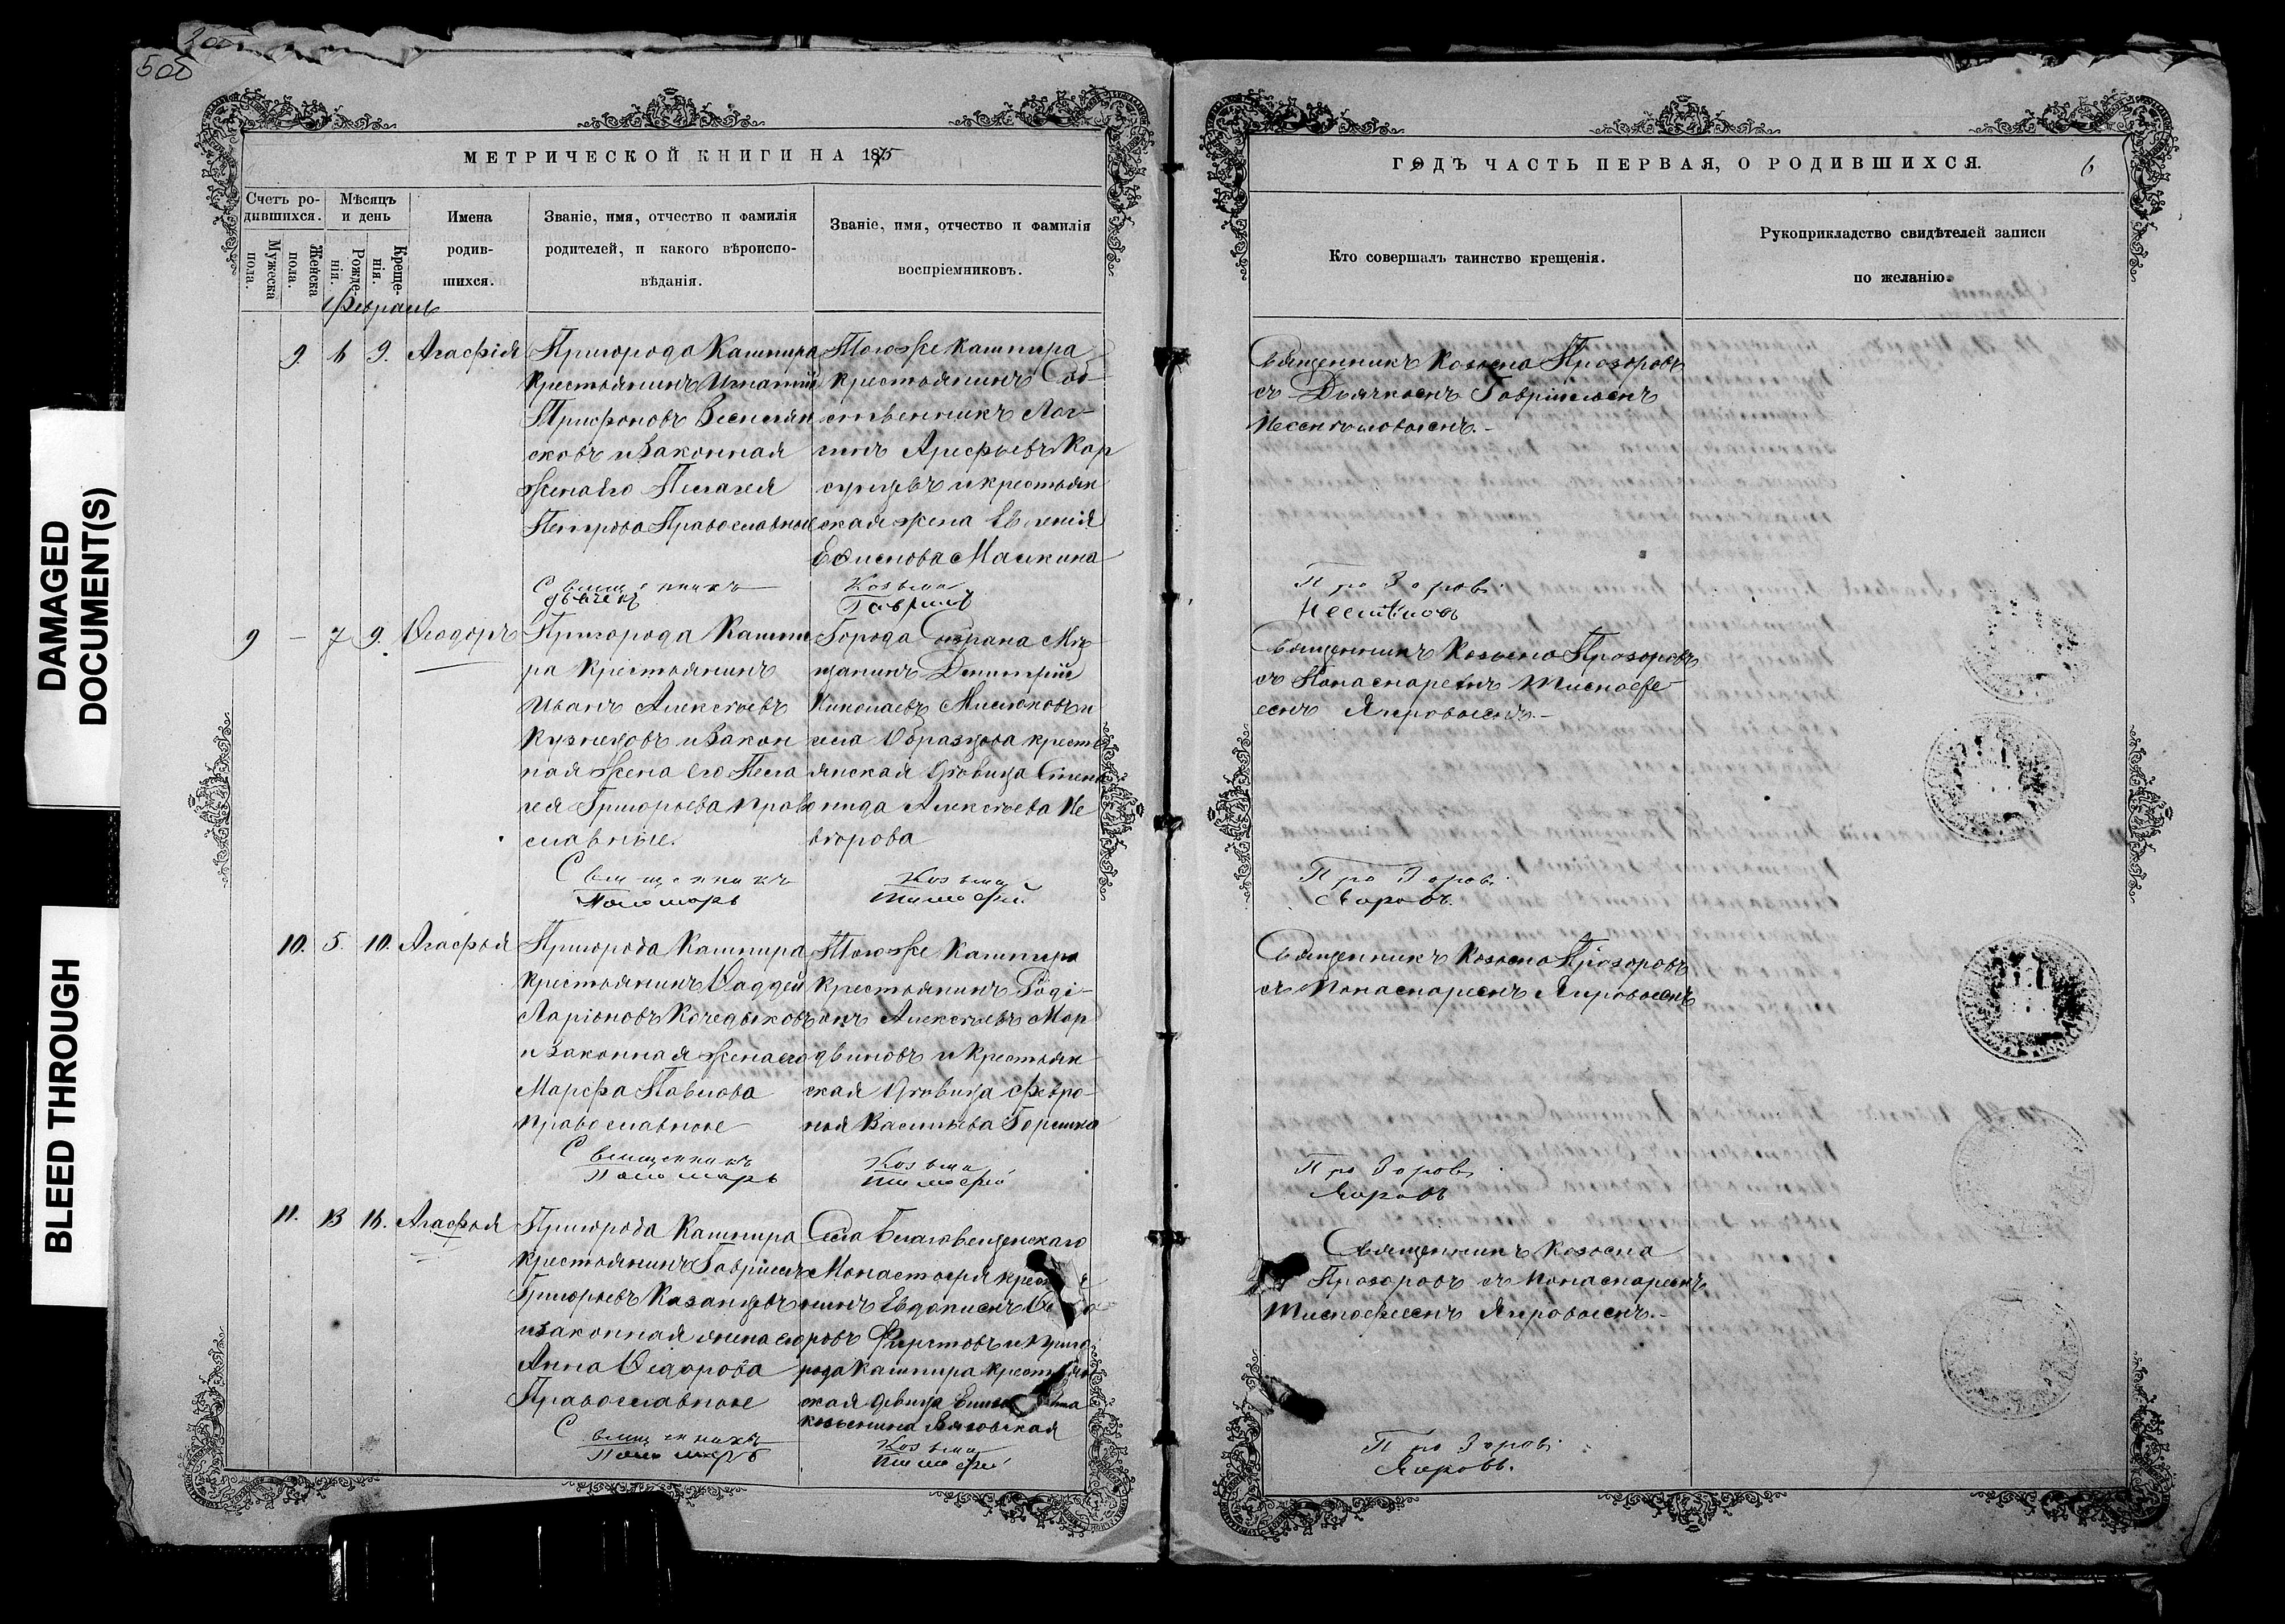 505
МЕТРИЧЕСКОЙ КНИГИ НА 1875
Счетъ ро-
дившихся.
Мужеска
пола.
Женска
пола.
Мѣсяцъ
и день
Рожде-
нія.
Креще-
нія.
Имена
родив-
шихся.
Званіе, имя, отчество и фамилія
родителей, и какого вѣроиспо-
вѣданія.
Званіе, имя, отчество и фамилія
воспріемниковъ.
Февраль
9. 6 9. Агафія
Пригорода Кашпира
крестьянинъ Игнатій
Трифоновъ
сковъ и законная
жена его Пелагея
Петрова Православные
Тогоже Кашпира
крестьянинъ Соб-
ственникъ Лог-
гинъ Арефьевъ Кар
сунцевъ и крестьян
ская жена Евгенія
Ефимова Малкина
Священникъ Козьма
дьячекъ Гавриилъ
9 – 7 9. Ѳеодоръ
Пригорода Кашпи
ра крестьянинъ
Иванъ Алексѣевъ
Кузнецовъ и закон
ная жена его Пела
гея Григорьева право
славные.
Города Сызрана Мѣ
щанинъ Димитрій
Николаевъ и
села Образцова кресть
янская дѣвица Степа
нида Алексѣева Не
Священникъ Козьма
Пономарь Тимофей
10. 5. 10. Агафья
Пригорода Кашпира
крестьянинъ Ѳаддей
Ларіоновъ Кочедыковъ
и законная жена его
Марфа Павлова
православные
Тогоже Кашпира
крестьянинъ Родi-
онъ Алексѣевъ Мор
двиновъ и крестьян
ская дѣвица Февро-
нія Васильева
Священникъ Козьма
Пономарь Тимофей
11. 13 16. Агафья
Пригорода Кашпира
крестьянинъ Гавріилъ
Григорьевъ Казанцевъ
и законная жена его
Анна Ѳедорова
Православные
Села Благовещенскаго
Монастыря
нинъ Евдокимъ
ровъ Фирстовъ и приго
рода Кашпира крестьян
ская дѣвица
козьмина Вязовская
Священникъ Козьма
Пономарь Тимофей
ГОДЪ ЧАСТЬ ПЕРВАЯ, О РОДИВШИХСЯ.
6
Кто совершалъ таинство крещенія.
Рукоприкладство свидѣтелей записи
по желанію.
Священникъ Козьма Прозоровъ
съ Дьячкомъ Гавріиломъ
Прозоровъ
Священникъ Козьма Прозоровъ
съ Понамаремъ Тимофе
емъ Яировымъ.–
Прозоровъ
Яировъ.
Священникъ Козьма Прозоровъ
съ Понамаремъ Яировымъ
Прозоровъ
Яировъ
Священникъ Козьма
Прозоровъ съ Понамаремъ
Тимофеемъ Яировымъ.–
Прозоровъ
Яировъ.
DAMAGED
DOCUMENT(S)
BLEED THROUGH